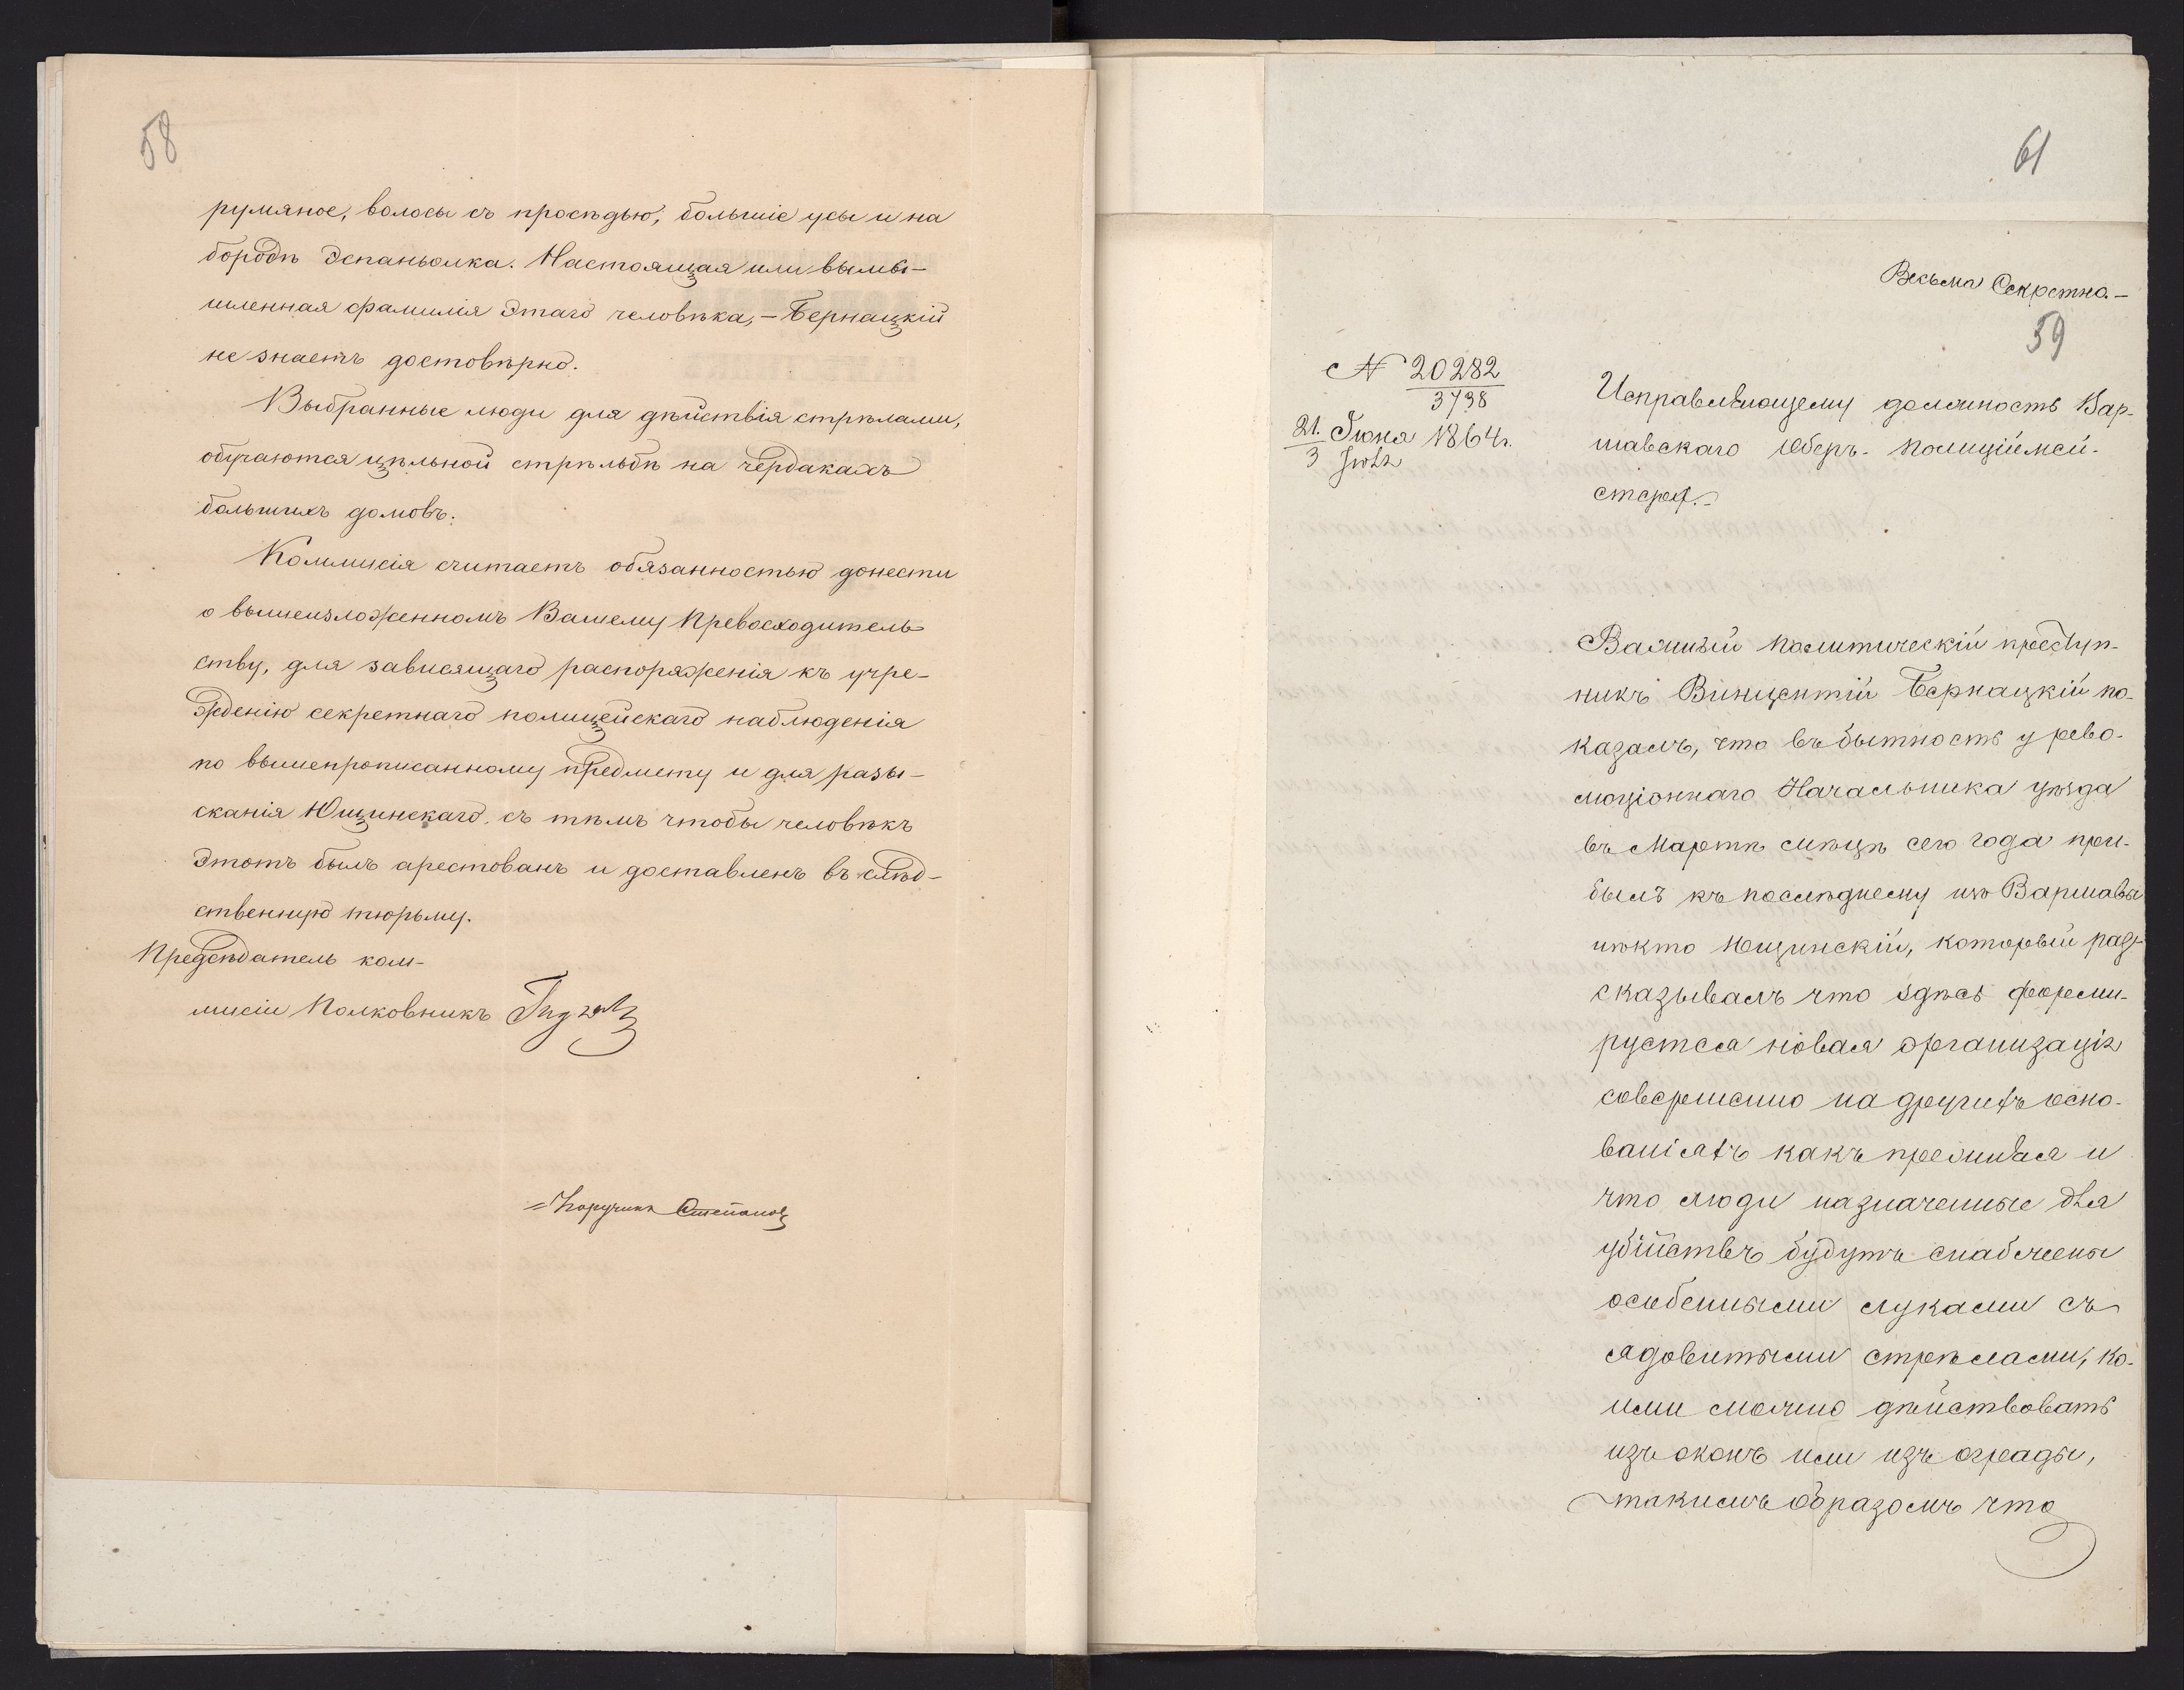 58
румяное, волосы съ просѣдью, большіе усы и на
бородѣ эспаньолка. Настоящая или вымы-
шленная фамилія этаго человѣка, – Бернацкій
не знаетъ достовѣрно.
Выбранные люди для дѣйствія стрѣлами,
обучаются цѣльной стрѣльбѣ на чердакахъ
большихъ домовъ.
Коммисія считаетъ обязанностью донести
о вышеизложенномъ Вашему Превосходитель
ству, для зависящаго распоряженія къ учре-
жденію секретнаго полицейскаго наблюденія
по вышепрописанному предмету и для разы-
сканія Ющинскаго, съ тѣмъ чтобы человѣкъ
этотъ былъ арестованъ и доставленъ въ слѣд-
ственную тюрьму.
Предсѣдатель ком-
мисіи Полковникъ
Поручикъ Степановъ
61
Весьма Секретно. –
59
N 20282
3798
21. Іюня 1864 г.
3 Іюля
Исправляющему должность Вар-
шавскаго Оберъ-Полиціймей-
стера. –
Важный политическій преступ-
никъ Винцентій Бернацкій по-
казалъ, что въ бытность у рево-
люціоннаго Начальника уѣзда
въ Мартѣ мѣсцѣ сего года при-
былъ къ послѣднему изъ Варшавы
нѣкто Ющинскій, который раз-
сказывалъ что здѣсь форми-
руется новая организація
совершенно на другихъ осно-
ваніяхъ какъ прежняя и
что люди назначенные для
убійствъ будутъ снабжены
особенными луками съ
ядовитыми стрѣлами, ко-
ими можно дѣйствовать
изъ оконъ или изъ ограды,
такимъ образомъ что